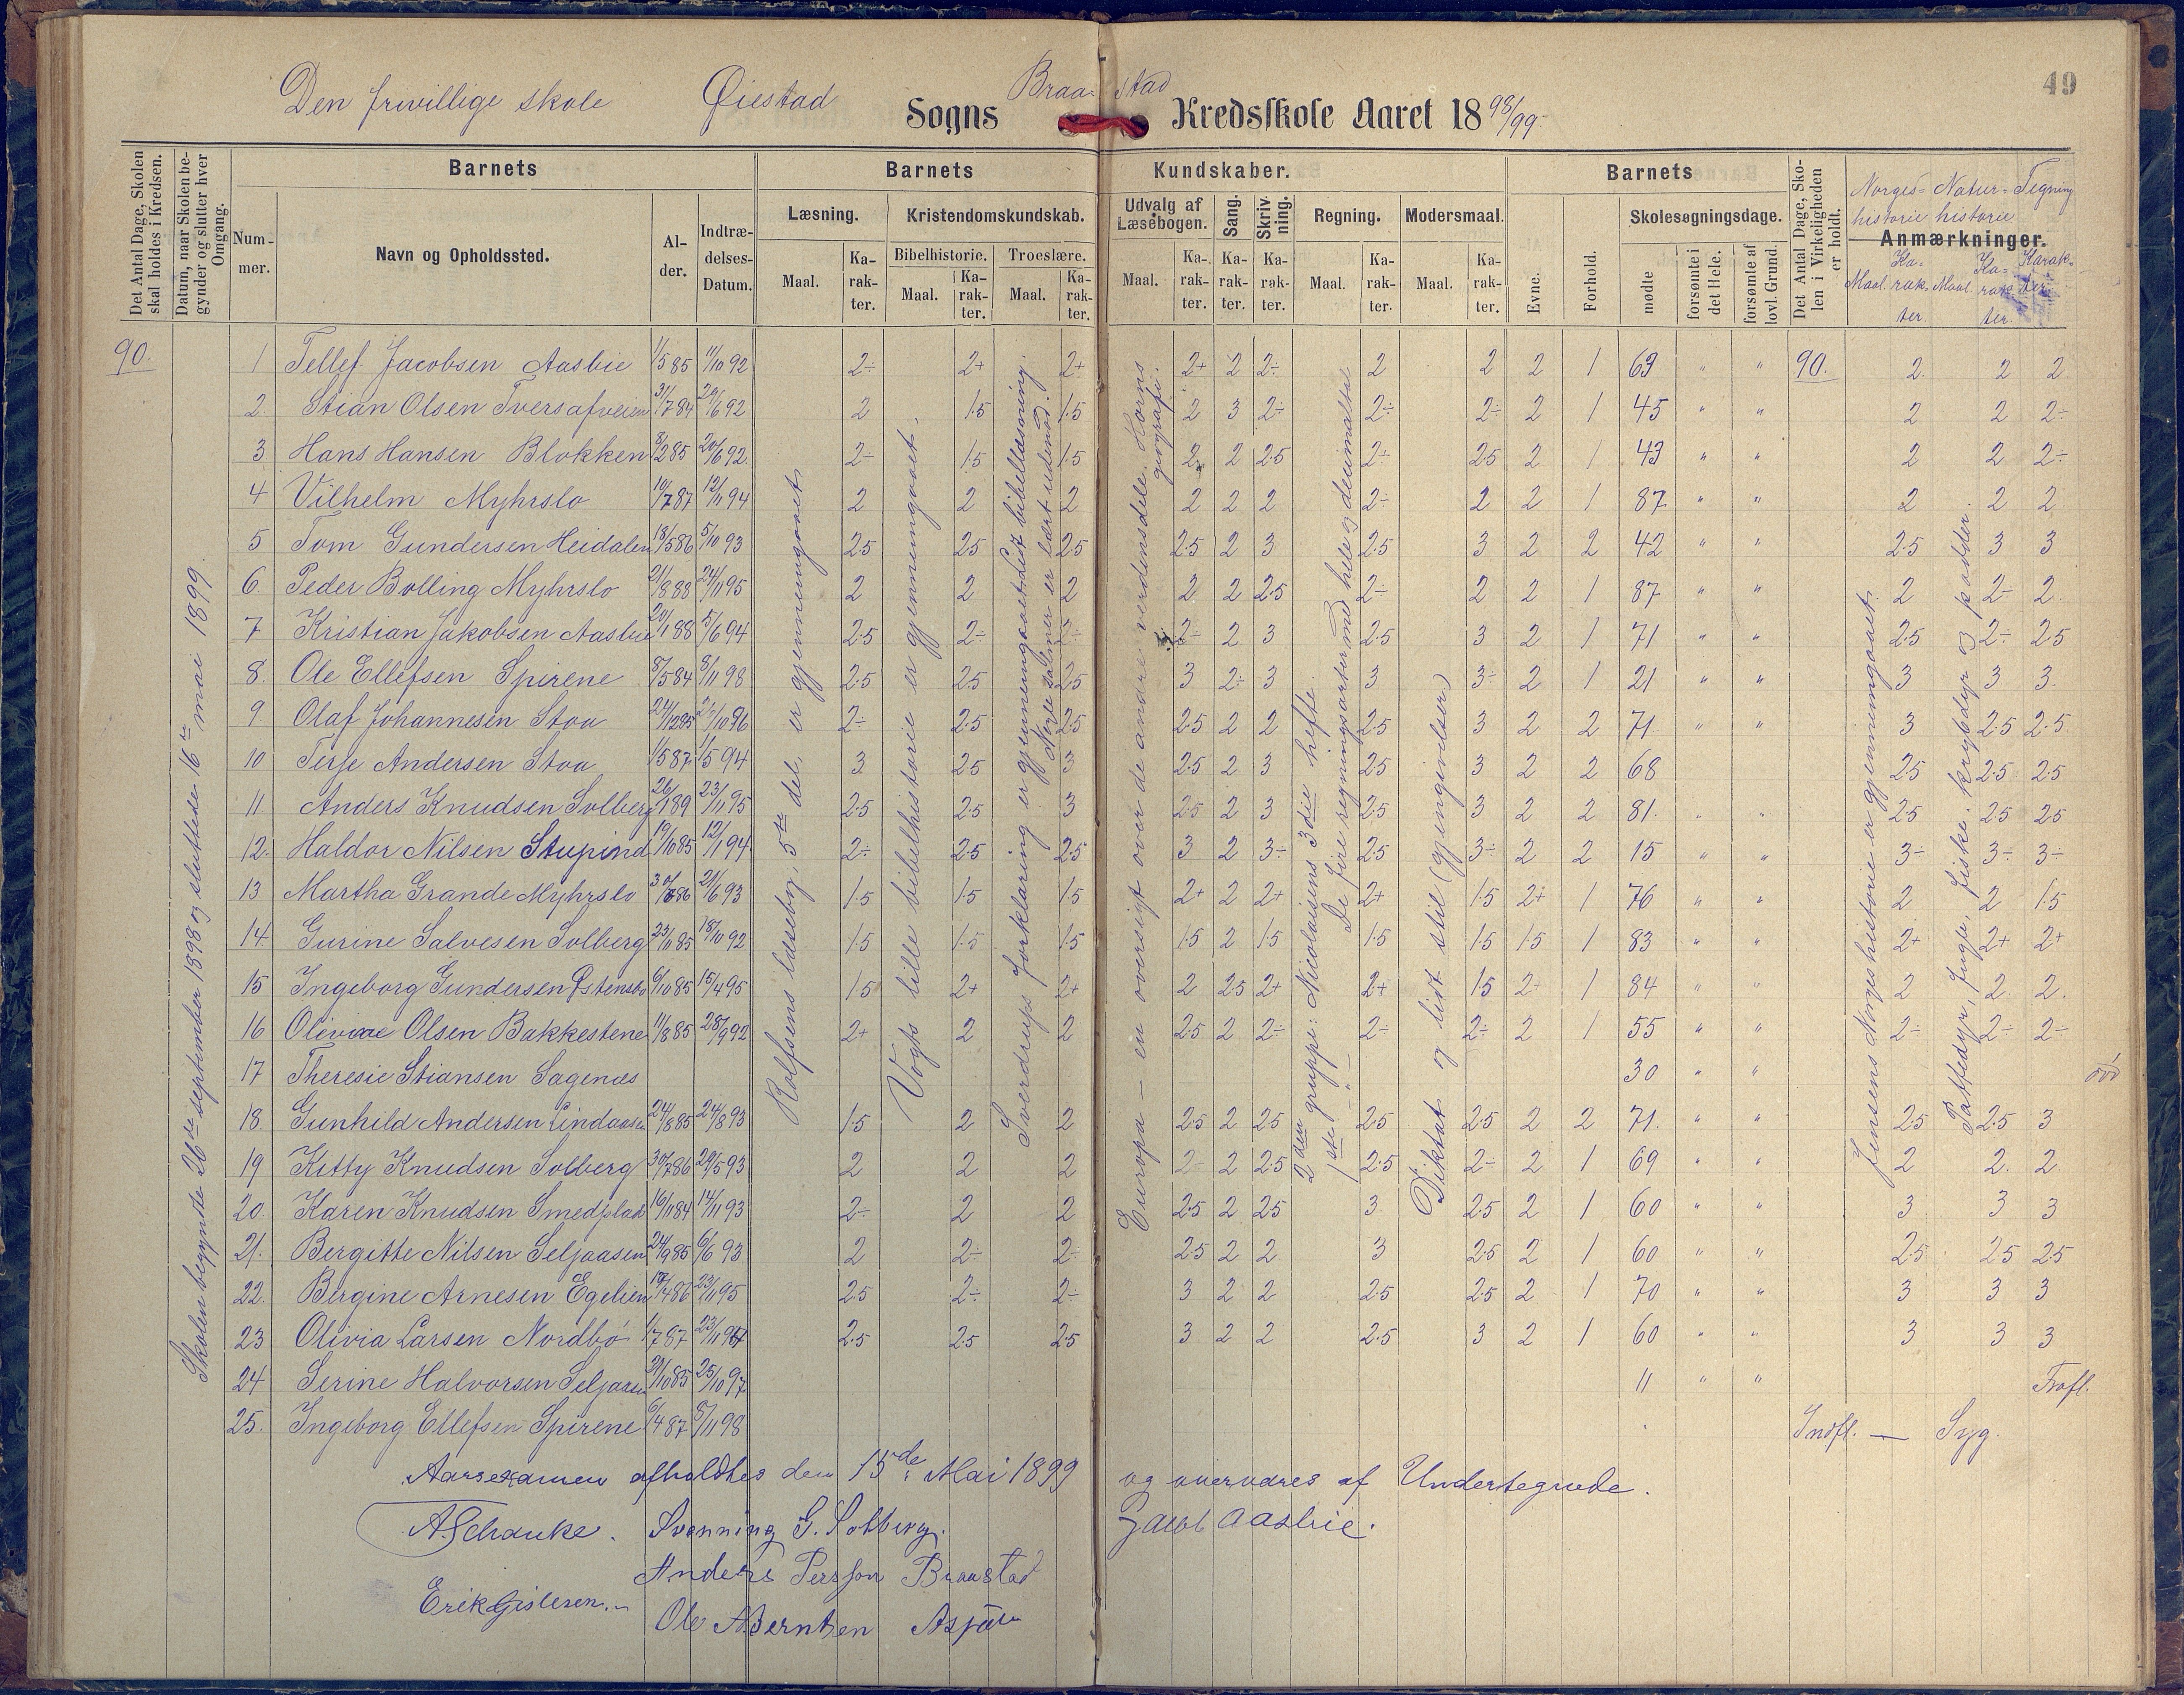 49
Den frivillige skole Øiestad Sogns Braastad Kredsskole Aaret 1898/99
Det Antal Dage, Skolen skal holdes i Kredsen.
Datum, naar Skolen begynder og slutter hver Omgang.
Barnets
Nummer.
Navn og Opholdssted.
Alder.
Indtrædelses-Datum.
Barnets Kundskaber.
Læsning.
Maal. Karakter.
Kristendomskundskab.
Bibelhistorie. Troeslære.
Maal. Karakter. Maal. Karakter.
Udvalg af Læsebogen.
Maal. Karakter.
Sang. Karakter.
Skrivning. Karakter.
Regning.
Maal. Karakter.
Modersmaal.
Maal. Karakter.
Barnets
Evne. Forhold.
Skolesøgningsdage.
mødte forsømte i det Hele. forsømte af lovl. Grund.
Det Antal Dage, Skolen i Virkeligheden er holdt.
Norges-historie Natur-historie Tegning
Anmærkninger.
Maal Karakter. Maal Karakter. Karakter.
90.
Skolen begyndte 26de september 1898 og sluttede 16de mai 1899.
Rolfsens læsebog, 5te del, er gjennemgaaet
Vogts lille bibelhistorie er gjennemgaaet.
Sverdrups forklaring er gjennemgaaet. Lidt bibellæsning.
Nogle salmer er lært udenad.
Europa – en oversigt over de andre verdensdele. Horns geografi.
2den gruppe: Nicolaisens 3die hefte.
1ste – " – De fire regningsarter med hele og decimaltal
Diktat og lidt stil (gjengivelser)
Jensens Norgeshistorie er gjennemgaaet.
Pattedyr, fugle, fiske, krybdyr og padder.
1 Tellef Jacobsen Aasbie 1/5 85 11/10 92 2÷ 2+ 2+ 2+ 2 2÷ 2 2 2 1 69 " " 90. 2 2 2
2 Stian Olsen Tversafveien 31/7 84 20/6 92 2 1.5 1.5 2 3 2÷ 2÷ 2÷ 2 1 45 " " 2 2 2÷
3 Hans Hansen Blokken 3/2 85 20/6 92 2÷ 1.5 1.5 2 2 2.5 2÷ 2.5 2 1 43 " " 2 2 2÷
4 Vilhelm Myhrslo 10/7 87 12/11 94 2 2 2 2 2 2 2÷ 2 2 1 87 " " 2 2 2
5 Tom Gundersen Heidalen 18/5 86 5/10 93 2.5 2.5 2.5 2.5 2 3 2.5 3 2 2 42 " " 2.5 3 3
6 Peder Bolling Myhrslo 21/8 88 24/11 95 2 2 2 2 2 2.5 2÷ 2 2 1 87 " " 2 2÷ 2
7 Kristian Jakobsen Aasbie 20/1 88 5/6 94 2.5 2÷ 2÷ 2÷ 2 3 2.5 3 2 1 71 " " 2.5 2÷ 2.5
8. Ole Ellefsen Spirene 8/5 84 8/11 98 2.5 2.5 2.5 3 2÷ 3 3 3÷ 2 1 21 " " 3 3 3
9 Olaf Johannesen Stoa 24/12 85 2÷ 2.5 2.5 2.5 2 2 2.5 3 2 2 71 " " 3 2.5 2.5
10 Terje Andersen Stoa 1/5 87 1/5 94 3 2.5 3 2.5 2 3 2.5 3 2 2 68 2.5 2.5 2.5
11 Anders Knudsen Solberg 26/1 89 23/11 95 2.5 2.5 3 2.5 2 3 2.5 3 2 2 81. " " 2.5 2.5 2.5
12. Haldor Nilsen Stupind 19/10 85 12/1 94 2÷ 2.5 2.5 3 2 3÷ 2.5 3÷ 2 2 15 " " 3÷ 3÷ 3÷
13 Martha Grande Myhrslo 21/6 93 1.5 1.5 1.5 2+ 2 2+ 2+ 1.5 2+ 1 76 " " 2 2 1.5
14 Gurine Salvesen Solberg 23/11 85 18/10 92 1.5 1.5 1.5 1.5 2 1.5 1.5 1.5 1.5 1 83 " " 2+ 2+ 2+
15 Ingeborg Gundersen Østensbo 6/10 85 15/4 95 1.5 2+ 2+ 2 2.5 2+ 2+ 1.5 2+ 1 84 " " 2 2 2.
16 Olivae Olsen Bakkestene 11/8 85 28/9 92 2+ 2 2 2.5 2 2÷ 2÷ 2÷ 2 1 55 " " 2÷ 2÷ 2÷
17 Theresie Stiansen Sagenæs 30 " " død
18. Gunhild Andersen Lindaasen 24/8 85 24/8 93 1.5 2 2 2.5 2 2.5 2.5 2.5 2 2 71. " " 2.5 2.5 3
19 Kitty Knudsen Solberg 30/7 86 20/5 93 2 2 2 2÷ 2 2.5 2.5 2÷ 2 1 69 " " 2 2. 2
20 Karen Knudsen Smedplads 16/11 84 14/11 93 2÷ 2 2 2.5 2 2.5 3 2.5 2 1 60 " " 3 3 3
21. Bergitte Nilsen Seljaasen 24/9 85 6/6 93 2 2÷ 2÷ 2.5 2 2 3 2.5 2 1 60 " " 2.5 2.5 2.5
22. Bergine Arnesen Egelien 23/11 95 2.5 2÷ 2÷ 3 2 2 2.5 2.5 2 1 70 " " 3 3 3
23 Olivia Larsen Nordbø 1/7 87 2.5 2.5 2.5 3 2 2 2.5 3 2 1 60 " " 3 3 3
24 Serine Halvorsen Seljaasen 25/10 97 11 " " Frafl.
25. Ingeborg Ellefsen Spirene 6/4 87 8/11 98 Indfl. – Syg.
Aarsexamen afholdtes den 15de Mai 1899 og overværes af Undertegnede.
A Schanke. Svenning G. Solberg. Jacob Aasbie.
Anders Persson Braastad
Erik Gislesen.
Ole A Berntsen